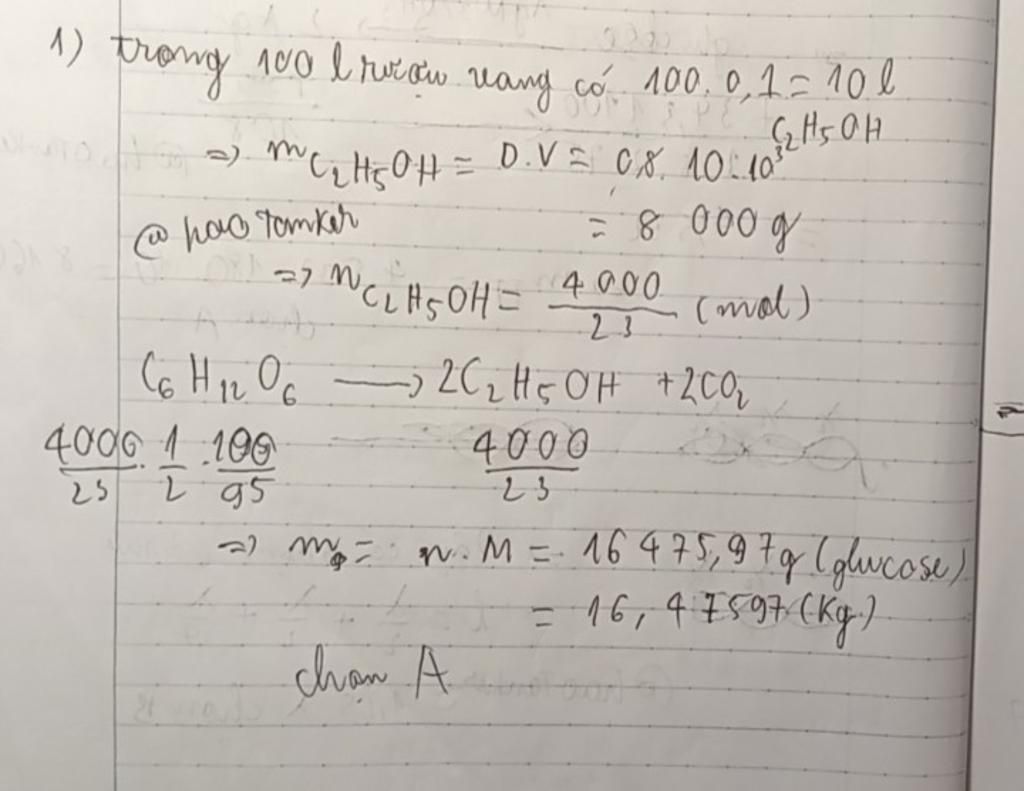 1) trong 100 l rượu vang có 100. 0,1 = 10 l
C2H5OH
=> mC2H5OH = D.V = 0,8. 10.10³
@haotamker = 8 000 g
=> nC2H5OH = 4000/23 (mol)
C6H12O6 → 2C2H5OH + 2CO2
4000/23 . 1/2 . 100/95 4000/23
=> m = n.M = 16 475,97g (glucose)
= 16,47597 (Kg)
chọn A